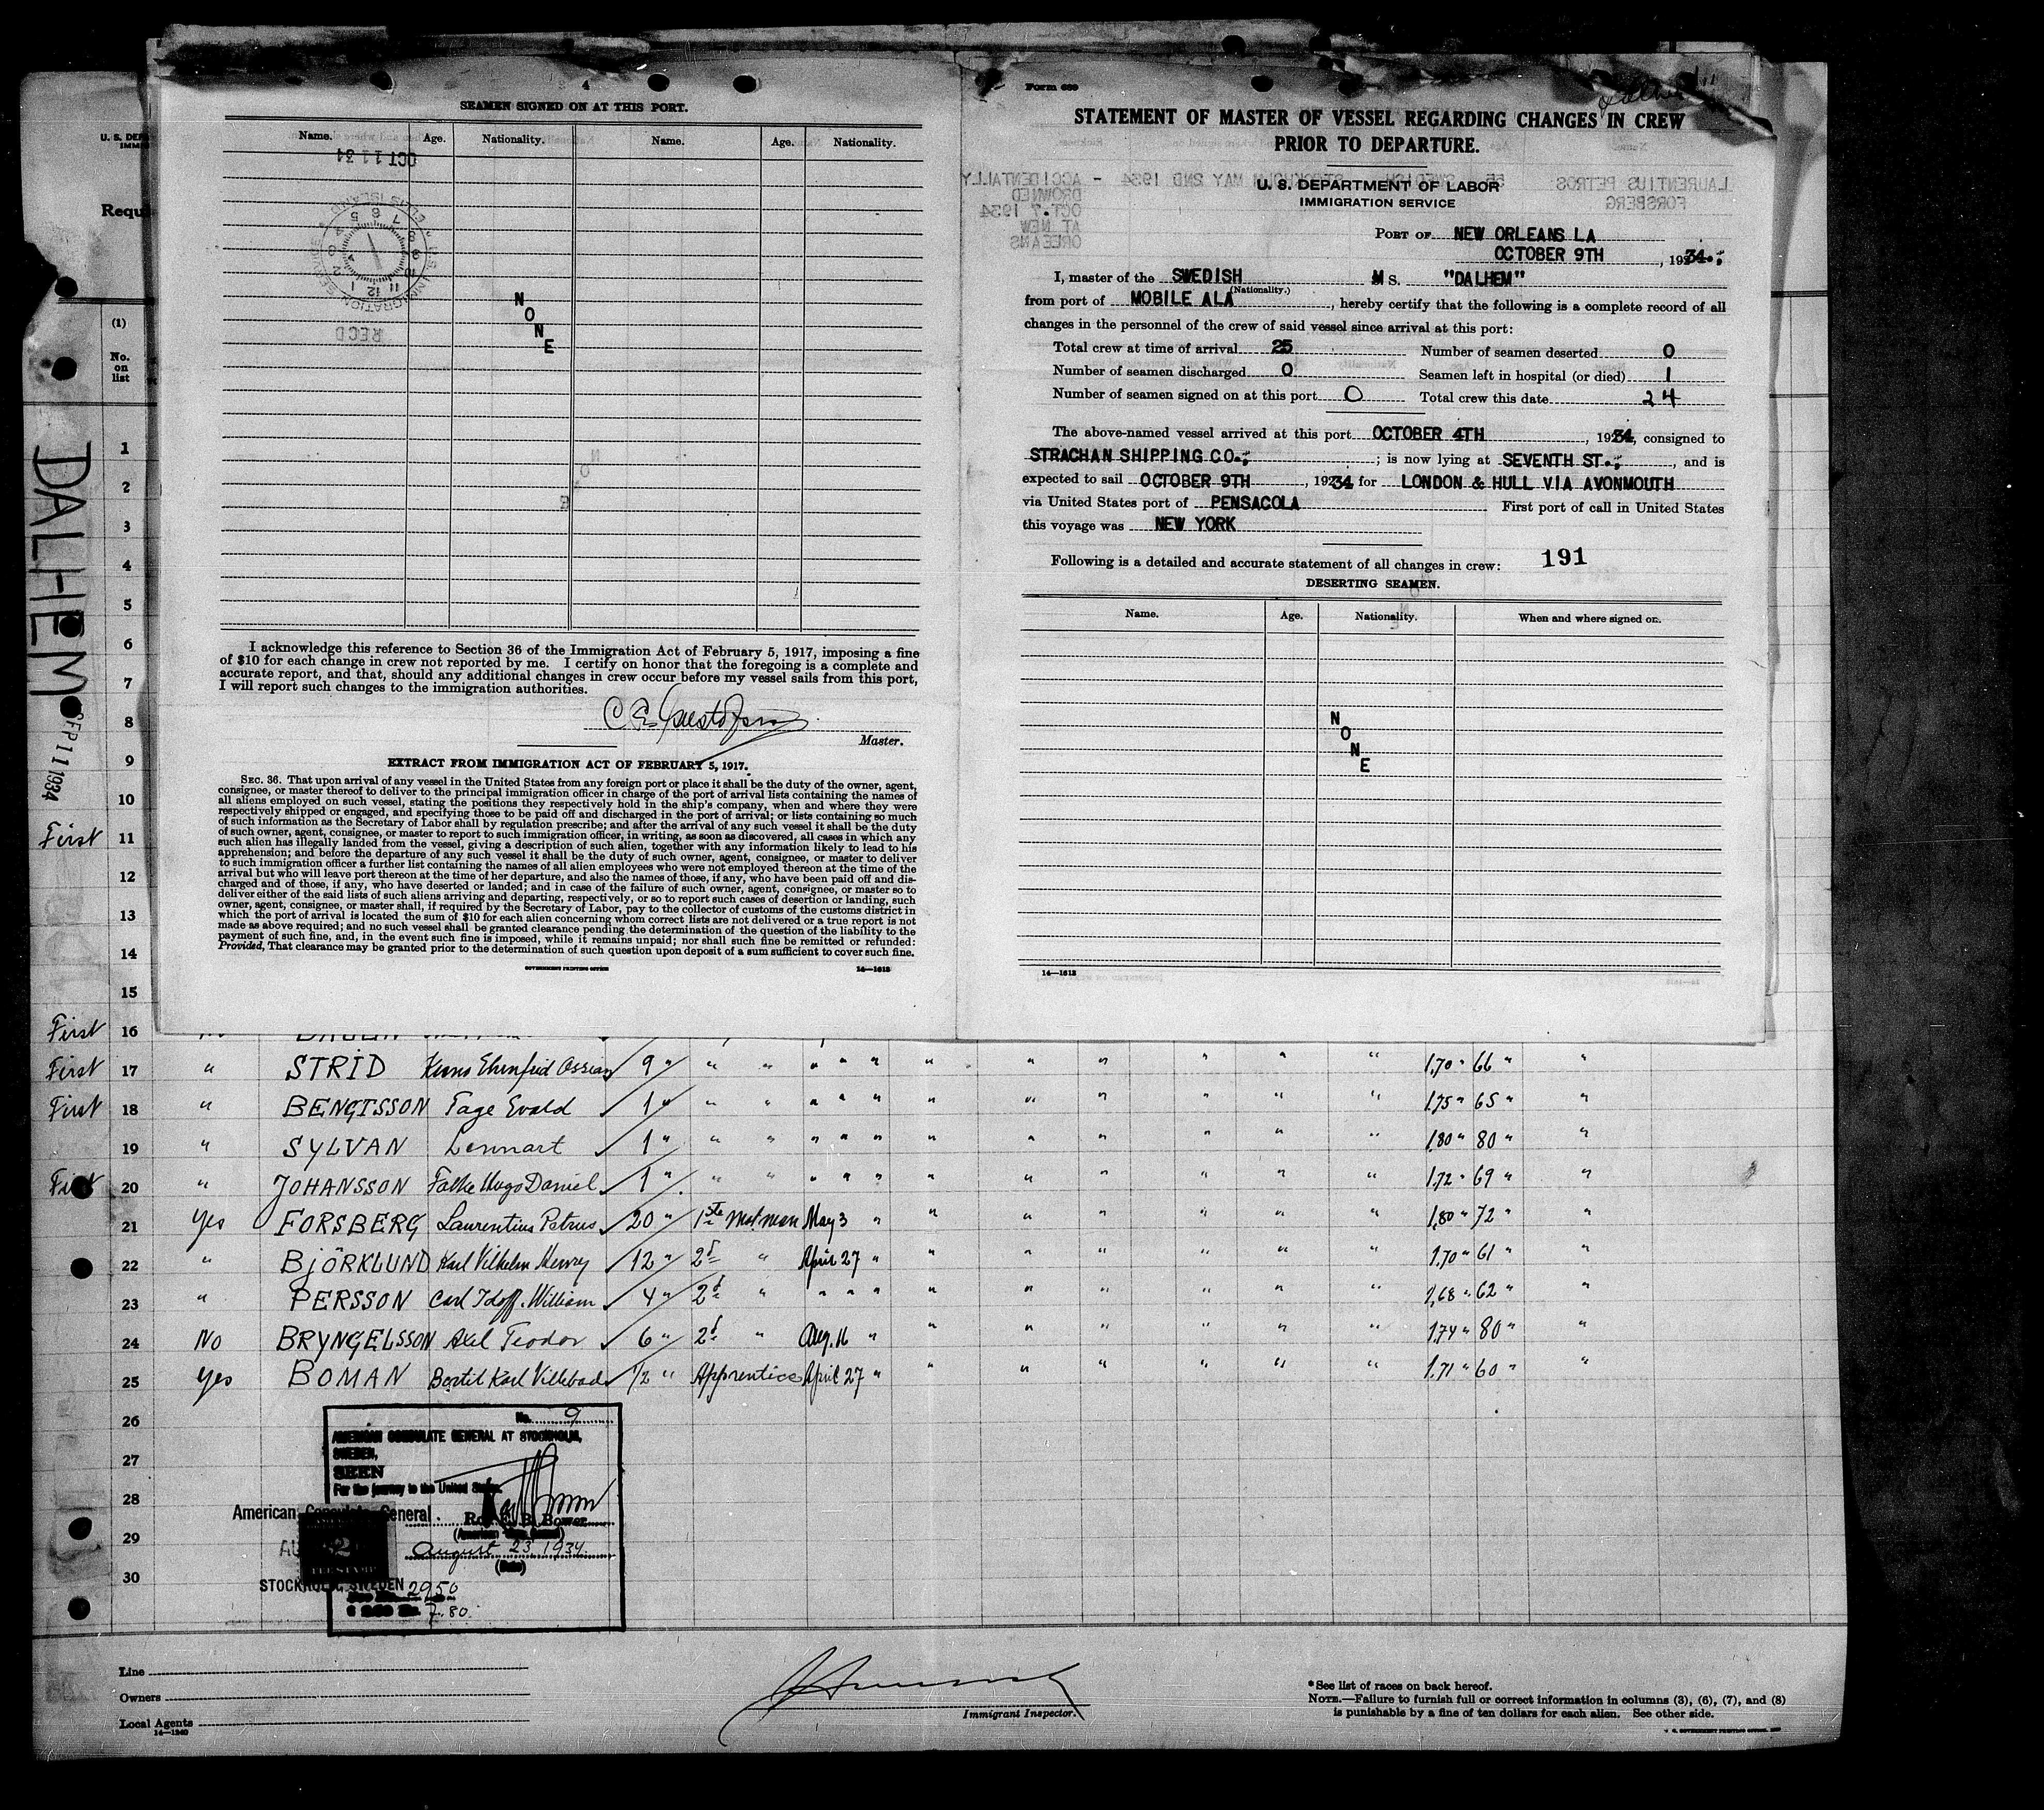 4
SEAMEN SIGNED ON AT THIS PORT.
Name. Age. Nationality. Name. Age. Nationality.
OCT 11 34
U.S. IMMIGRATION SERVICE
ELLIS ISLAND
REC'D
N
O
N
E
I acknowledge this reference to Section 36 of the Immigration Act of February 5, 1917, imposing a fine
of $10 for each change in crew not reported by me. I certify on honor that the foregoing is a complete and
accurate report, and that, should any additional changes in crew occur before my vessel sails from this port,
I will report such changes to the immigration authorities.
C E Gustafson
Master.
EXTRACT FROM IMMIGRATION ACT OF FEBRUARY 5, 1917.
SEC. 36. That upon arrival of any vessel in the United States from any foreign port or place it shall be the duty of the owner, agent,
consignee, or master thereof to deliver to the principal immigration officer in charge of the port of arrival lists containing the names of
all aliens employed on such vessel, stating the positions they respectively hold in the ship's company, when and where they were
respectively shipped or engaged, and specifying those to be paid off and discharged in the port of arrival; or lists containing so much
of such information as the Secretary of Labor shall by regulation prescribe; and after the arrival of any such vessel it shall be the duty
of such owner, agent, consignee, or master to report to such immigration officer, in writing, as soon as discovered, all cases in which any
such alien has illegally landed from the vessel, giving a description of such alien, together with any information likely to lead to his
apprehension; and before the departure of any such vessel it shall be the duty of such owner, agent, consignee, or master to deliver
to such immigration officer a further list containing the names of all alien employees who were not employed thereon at the time of the
arrival but who will leave port thereon at the time of her departure, and also the names of those, if any, who have been paid off and dis-
charged and of those, if any, who have deserted or landed; and in case of the failure of such owner, agent, consignee, or master so to
deliver either of the said lists of such aliens arriving and departing, respectively, or so to report such cases of desertion or landing, such
owner, agent, consignee, or master shall, if required by the Secretary of Labor, pay to the collector of customs of the customs district in
which the port of arrival is located the sum of $10 for each alien concerning whom correct lists are not delivered or a true report is not
made as above required; and no such vessel shall be granted clearance pending the determination of the question of the liability to the
payment of such fine, and, in the event such fine is imposed, while it remains unpaid; nor shall such fine be remitted or refunded:
Provided, That clearance may be granted prior to the determination of such question upon deposit of a sum sufficient to cover such fine.
GOVERNMENT PRINTING OFFICE 14—1613
Form 689
STATEMENT OF MASTER OF VESSEL REGARDING CHANGES IN CREW
PRIOR TO DEPARTURE.
LAURENTIUS PETROS FORSBERG 55 SWEDISH STOCKHOLM MAY 2ND 1934 - ACCIDENTALLY
DROWNED
OCT. 7 1934
AT NEW
ORLEANS
U. S. DEPARTMENT OF LABOR
IMMIGRATION SERVICE
PORT OF NEW ORLEANS LA
OCTOBER 9TH, 1934.;
I, master of the SWEDISH M S. "DALHEM"
(Nationality.)
from port of MOBILE ALA, hereby certify that the following is a complete record of all
changes in the personnel of the crew of said vessel since arrival at this port:
Total crew at time of arrival 25 Number of seamen deserted 0
Number of seamen discharged 0 Seamen left in hospital (or died) 1
Number of seamen signed on at this port 0 Total crew this date 24
The above-named vessel arrived at this port OCTOBER 4TH, 1934, consigned to
STRACHAN SHIPPING CO.; ; is now lying at SEVENTH ST.;, and is
expected to sail OCTOBER 9TH, 1934 for LONDON & HULL VIA AVONMOUTH
via United States port of PENSACOLA First port of call in United States
this voyage was NEW YORK
Following is a detailed and accurate statement of all changes in crew: 191
DESERTING SEAMEN.
Name. Age. Nationality. When and where signed on.
N
O
N
E
14—1613
U. S. DEP
IMMI
Requi
(1)
No.
on
list
DALHEM
SEP 11 1934
1
2
3
4
5
6
7
8
9
10
First 11
12
13
14
15
First 16
First 17 " STRID Ehrenfrid Ossian 9 " " " " " " " " " " " " 1,70 " 66 " "
First 18 " BENGTSSON Tage Evald 1 " " " " " " " " " " " " 1,75 " 65 " "
19 " SYLVAN Lennart 1 " " " " " " " " " " " " 1,80 " 80 " "
First 20 " JOHANSSON Folke Hugo Daniel 1 " " " " " " " " " " " " 1,72 " 69 " "
21 Yes FORSBERG Laurentius Petrus 20 " 1ste Motman May 3 " " " " " " " 1,80 " 72 " "
22 " BJÖRKLUND Karl Vilhelm Henry 12 " 2d " April 27 " " " " " " " 1,70 " 61 " "
23 " PERSSON Carl Idoff. William 4 " 2d " " " " " " " " " " 1,68 " 62 " "
24 No BRYNGELSSON Axel Teodor 6 " 2d " Aug. 16 " " " " " " " 1,74 " 80 " "
25 Yes BOMAN Bertil Karl Villebad 1/2 " Apprentice April 27 " " " " " " " 1,71 " 60 " "
26
27
28
29
30
No. 9
AMERICAN CONSULATE GENERAL AT STOCKHOLM,
SWEDEN,
SEEN
For the journey to the United States.
American Consulate General
Roy E. B. Bower
August 23 1934.
(Date)
STOCKHOLM, SWEDEN
2950
7.80
Line
Owners
Local Agents
14—1240
Immigrant Inspector.
*See list of races on back hereof.
NOTE.—Failure to furnish full or correct information in columns (3), (6), (7), and (8)
is punishable by a fine of ten dollars for each alien. See other side.